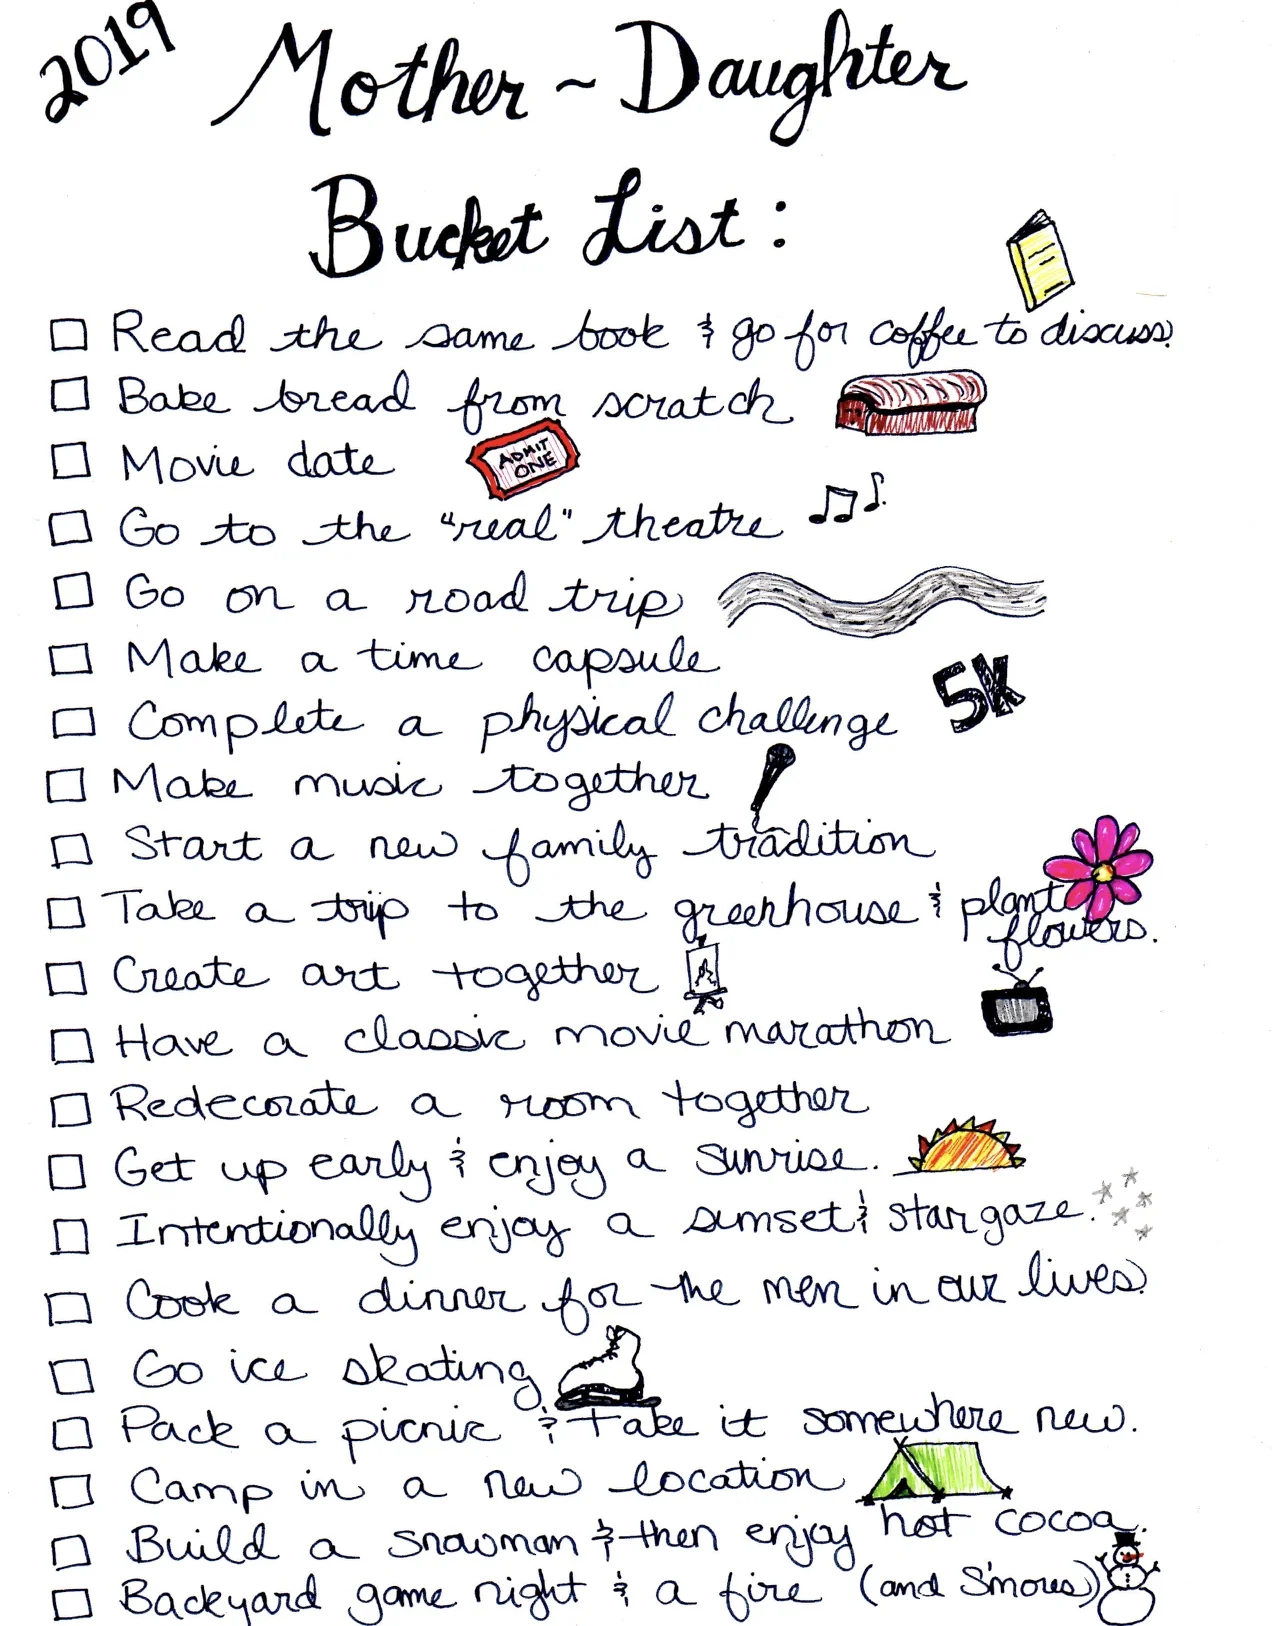 2019
Mother ~ Daughter
Bucket List:
Read the same book & go for coffee to discuss.
Bake bread from scratch
Movie date
ADMIT
ONE
Go to the "real" theatre
Go on a road trip
Make a time capsule
5K
Complete a physical challenge
Make music together
Start a new family tradition
Take a trip to the greenhouse & plant
flowers.
Create art together
Have a classic movie marathon
Redecorate a room together
Get up early & enjoy a sunrise.
Intentionally enjoy a sunset & stargaze.
Cook a dinner for the men in our lives.
Go ice skating
Pack a picnic & take it somewhere new.
Camp in a new location
Build a snowman & then enjoy hot cocoa.
Backyard game night & a fire (and S'mores)